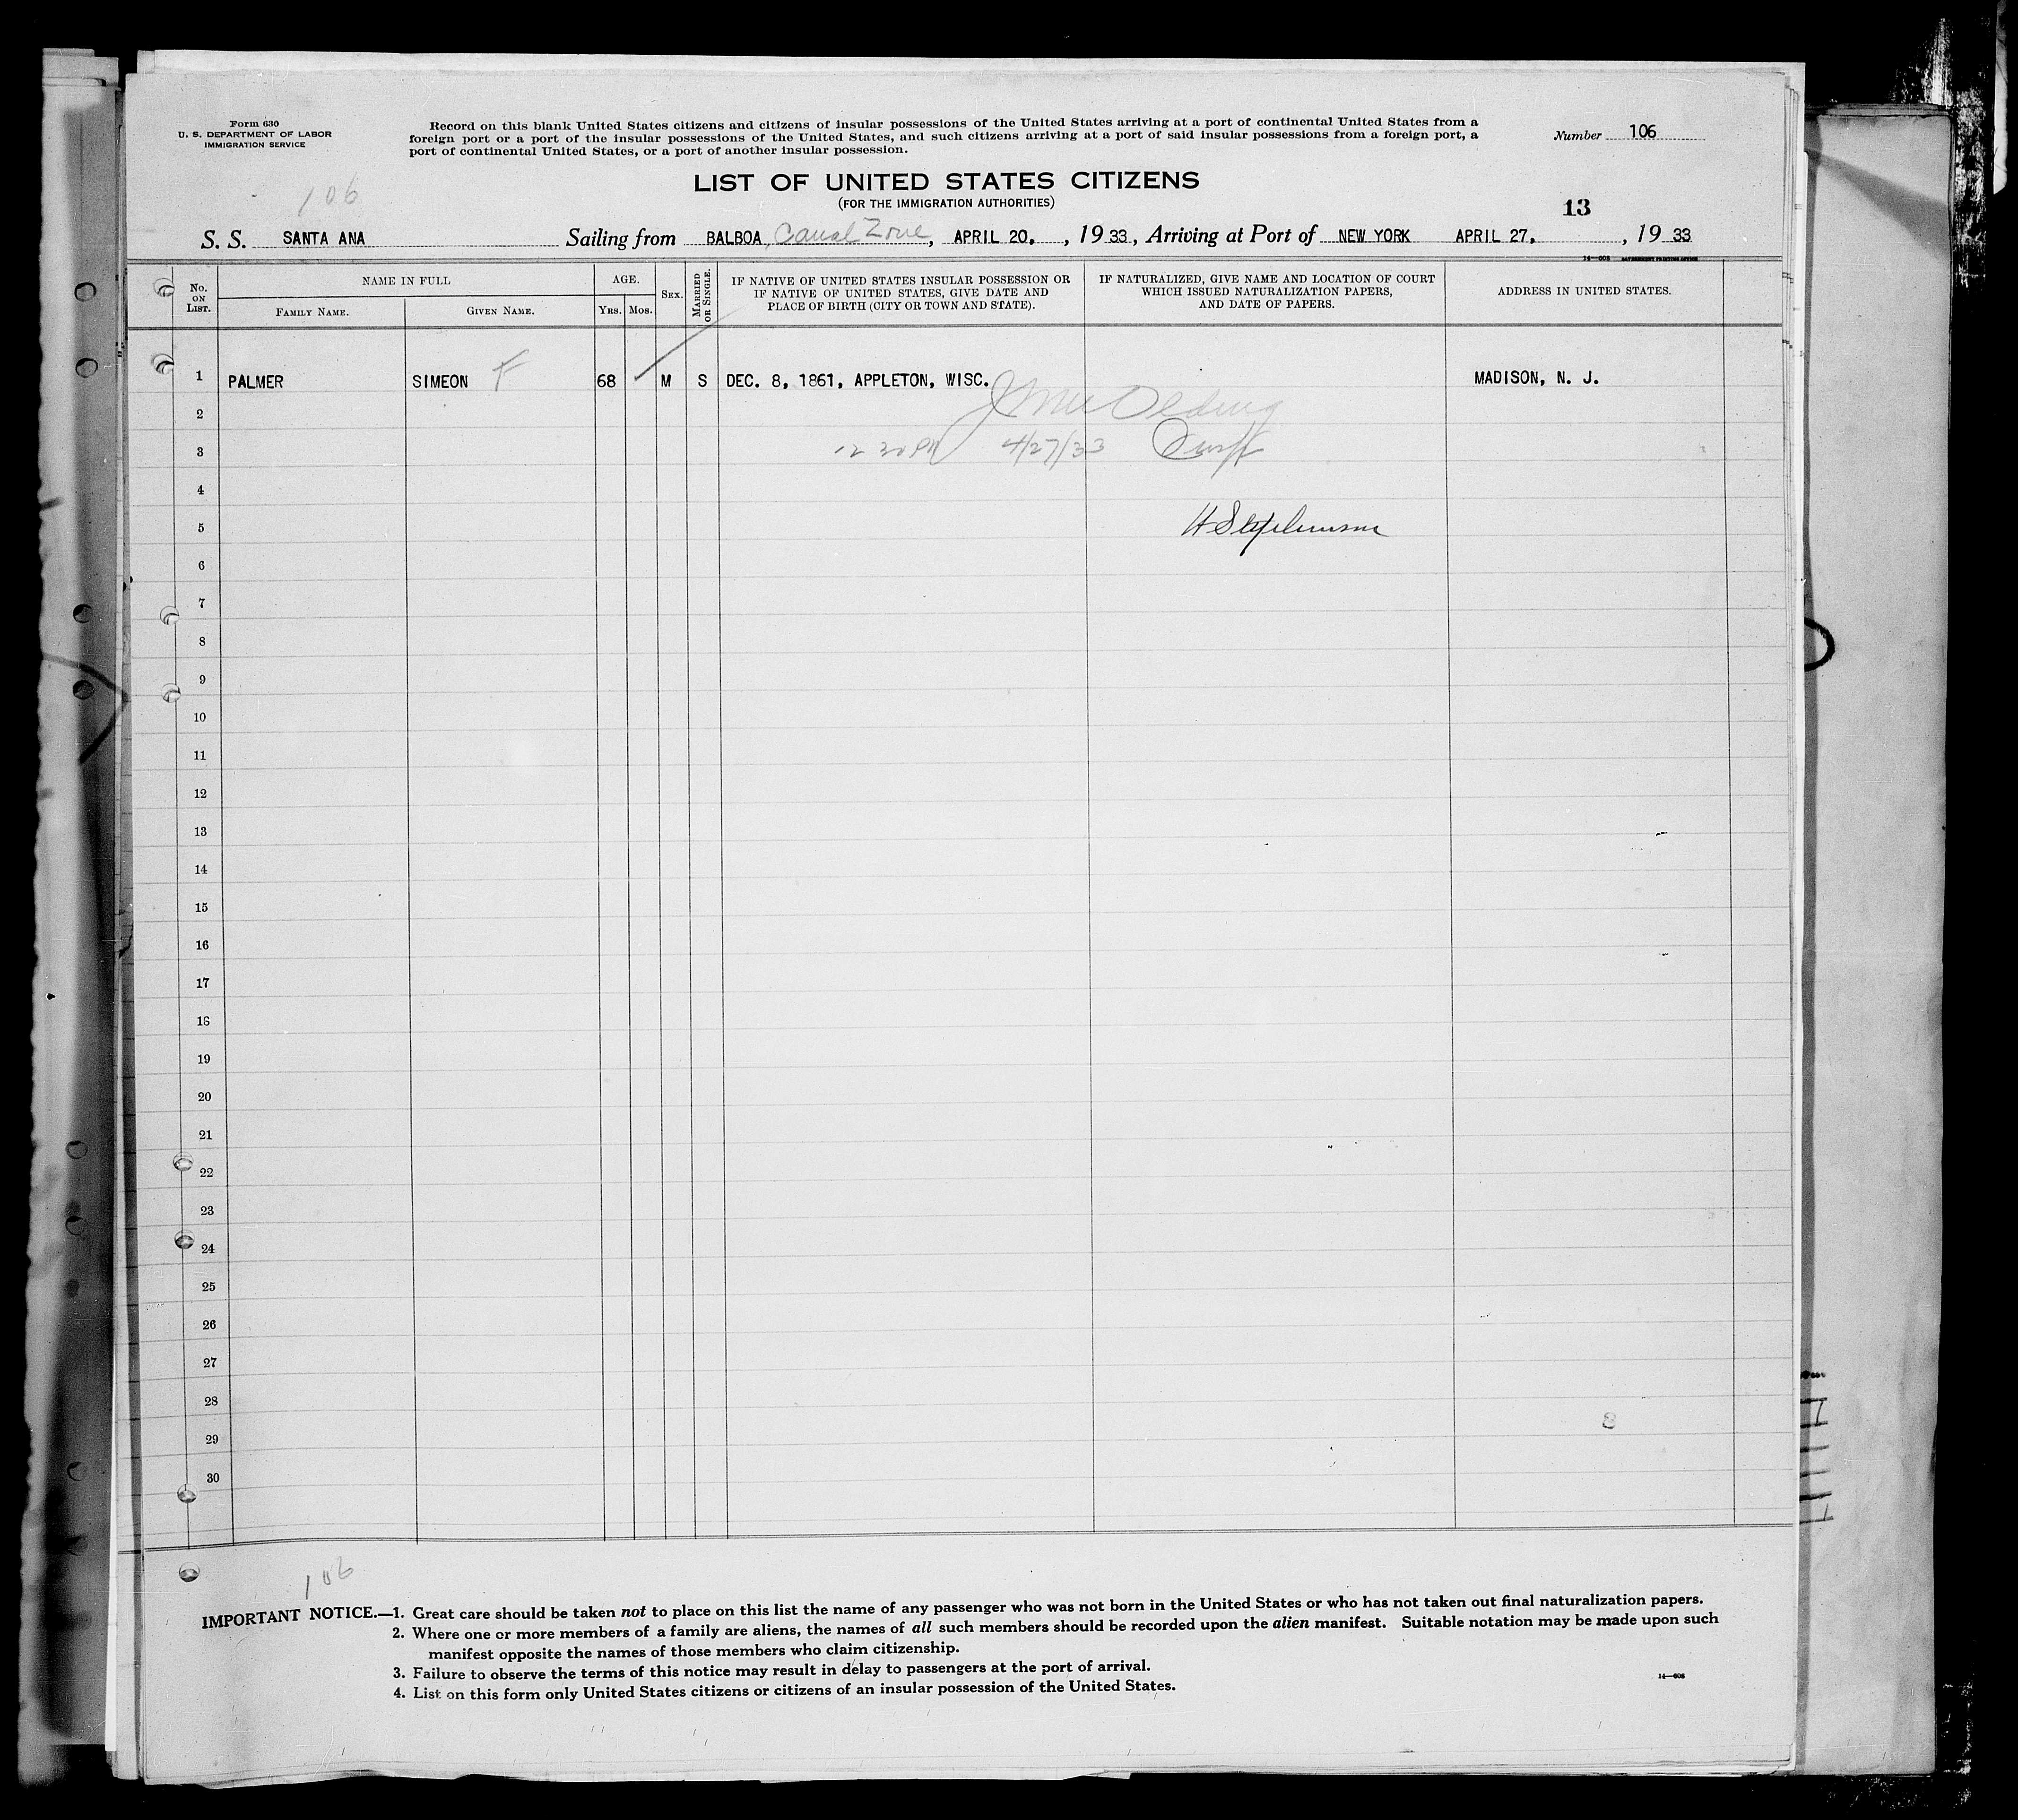 Form 630
U. S. DEPARTMENT OF LABOR
IMMIGRATION SERVICE
Record on this blank United States citizens and citizens of insular possessions of the United States arriving at a port of continental United States from a
foreign port or a port of the insular possessions of the United States, and such citizens arriving at a port of said insular possessions from a foreign port, a
port of continental United States, or a port of another insular possession.
Number 106
106
LIST OF UNITED STATES CITIZENS
(FOR THE IMMIGRATION AUTHORITIES)
13
S. S. SANTA ANA Sailing from BALBOA, Canal Zone, APRIL 20, , 1933, Arriving at Port of NEW YORK APRIL 27, , 1933
14—608 GOVERNMENT PRINTING OFFICE
No. ON LIST. NAME IN FULL AGE. SEX. MARRIED OR SINGLE. IF NATIVE OF UNITED STATES INSULAR POSSESSION OR IF NATIVE OF UNITED STATES, GIVE DATE AND PLACE OF BIRTH (CITY OR TOWN AND STATE). IF NATURALIZED, GIVE NAME AND LOCATION OF COURT WHICH ISSUED NATURALIZATION PAPERS, AND DATE OF PAPERS. ADDRESS IN UNITED STATES.
FAMILY NAME. GIVEN NAME. YRS. MOS.
1 PALMER SIMEON F 68 M S DEC. 8, 1861, APPLETON, WISC. MADISON, N. J.
2
3 12 30 PM 4/27/33
4
5 H Stephenson
6
7
8
9
10
11
12
13
14
15
16
17
18
19
20
21
22
23
24
25
26
27
28
29
30
106
IMPORTANT NOTICE.—1. Great care should be taken not to place on this list the name of any passenger who was not born in the United States or who has not taken out final naturalization papers.
2. Where one or more members of a family are aliens, the names of all such members should be recorded upon the alien manifest. Suitable notation may be made upon such
manifest opposite the names of those members who claim citizenship.
3. Failure to observe the terms of this notice may result in delay to passengers at the port of arrival.
14—608
4. List on this form only United States citizens or citizens of an insular possession of the United States.